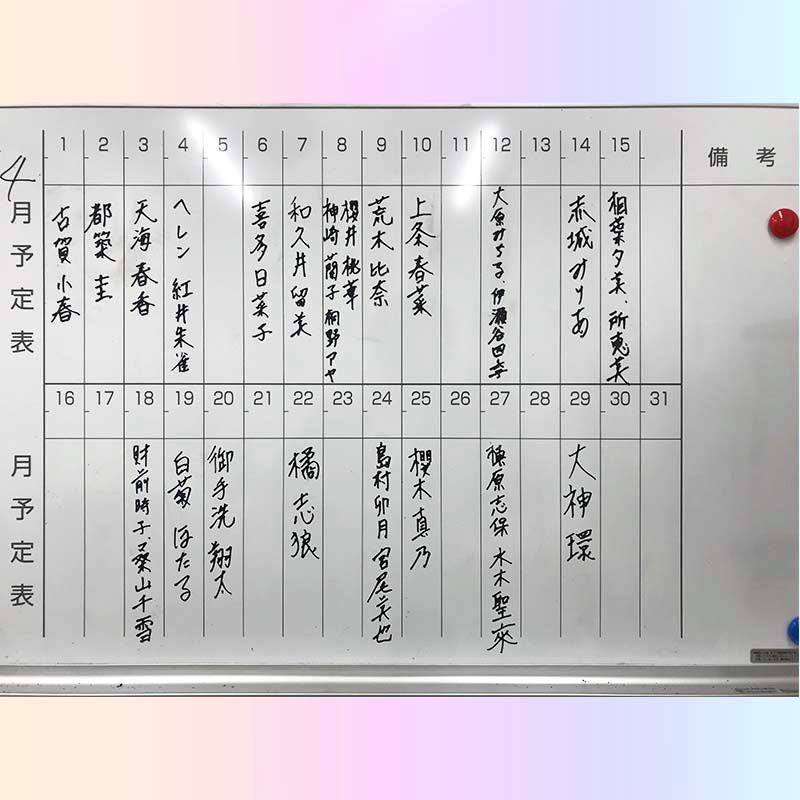 4
月予定表
備考
1
古賀小春
2
都築圭
3
天海春香
4
ヘレン 紅井朱雀
5
6
喜多日菜子
7
和久井留美
8
櫻井桃華
神崎蘭子 桐野アヤ
9
荒木比奈
10
上条春菜
11
12
大原みちる、伊瀬谷四季
13
14
赤城みりあ
15
相葉夕美、所恵美
月予定表
16
17
18
財前時子、桑山千雪
19
白菊ほたる
20
御手洗翔太
21
22
橘志狼
23
24
島村卯月 宮尾美也
25
櫻木真乃
26
27
榊原志保 水木聖來
28
29
大神環
30
31